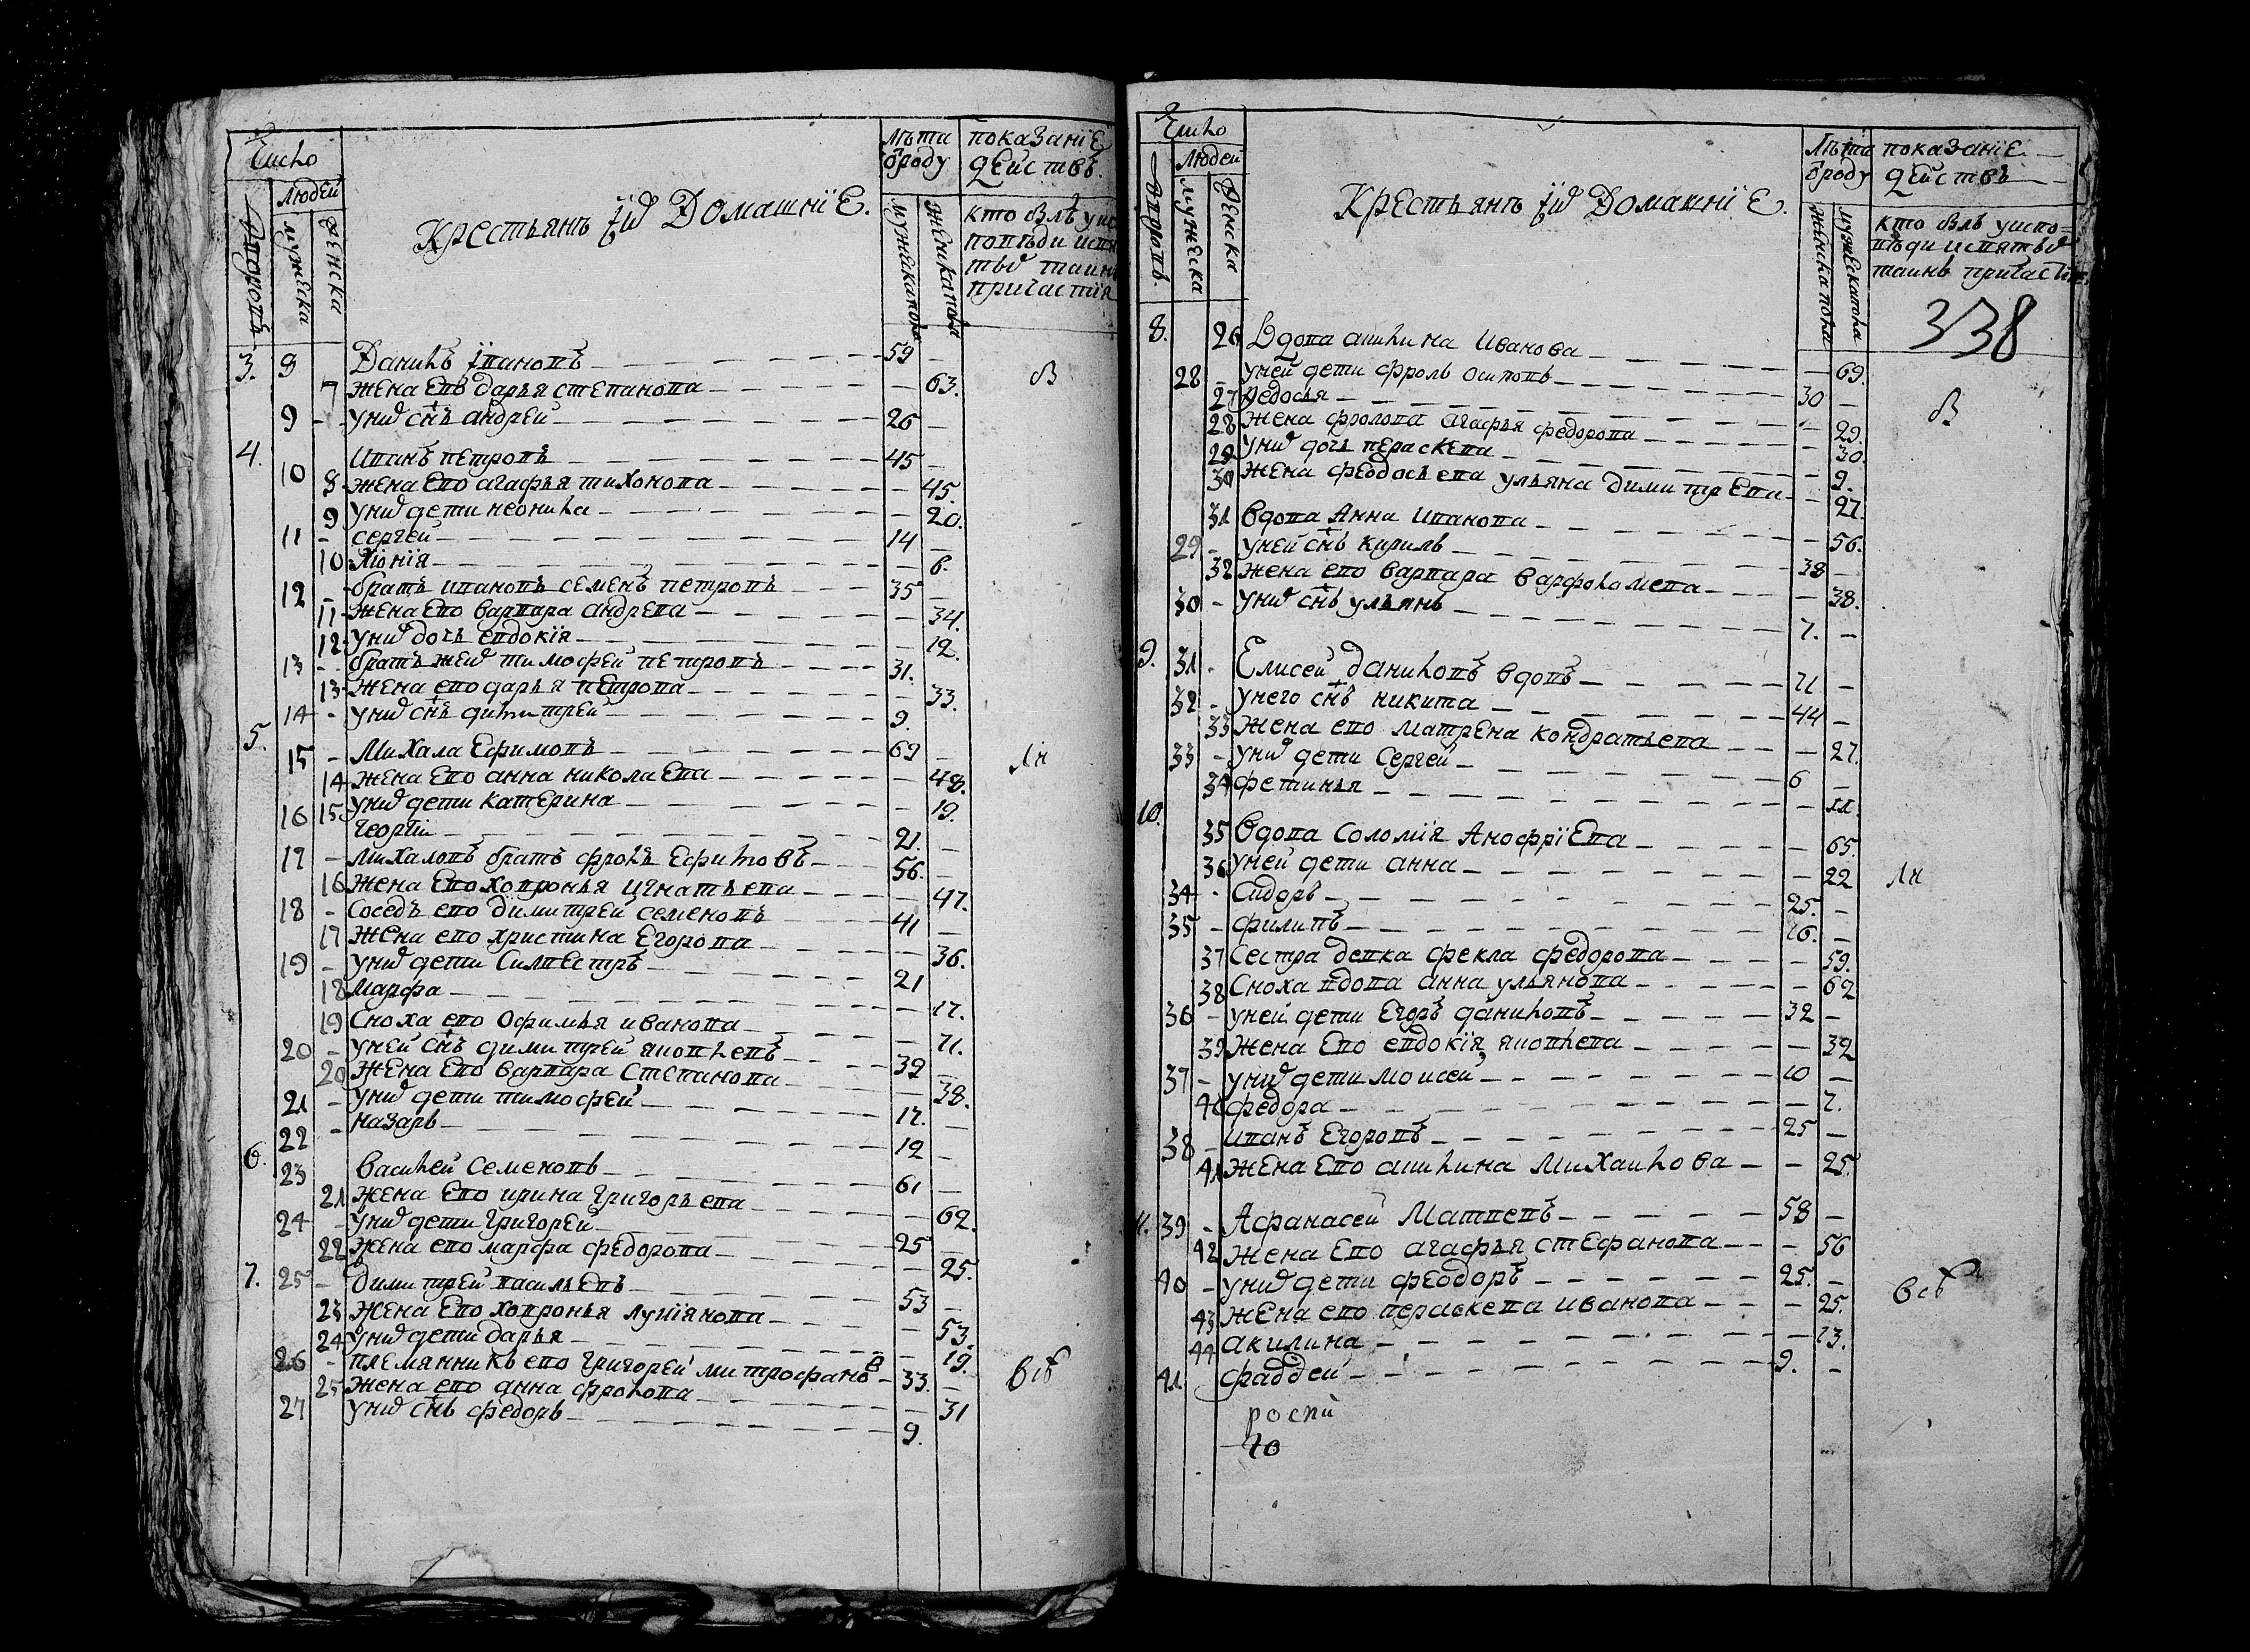 Число
Людей
Дворовъ
мужеска
женска
Крестьянъ їихъ Домашнїе.
Лѣта
ѿроду
мужеска пола
женска пола
показанїе
дѣйствъ.
кто былъ уис
повѣди исвя
тыхъ таинъ
причастїя
3. 8 Данилъ Ївановъ 59
7 жена евѡ дарья степанова 63.
9 унихъ сн҃ъ андрей 26
4. 10 Иванъ петровъ 45
8 жена ево агафья тихонова 45.
9 унихъ дети неонила 20.
11 сергей 14
10 Хионїя 6.
12 братъ ивановъ семенъ петровъ 35
11 жена ево варвара андрева 34.
12 унихъ дочь евдокїя 12.
13 братъ жеихъ тимофей петровъ 31.
13 жена ево дарья петрова 33.
14 унихъ сн҃ъ димитрей 9.
5. 15 Михала Ефимовъ 69
14 жена ево анна николаева 48.
16 15 унихъ дети катерина 19.
Георгїи 21.
17 михаловъ братъ фролъ Ефимовъ 56.
16 жена ево ховронья игнатьева 47.
18 Соседъ ево димитрей семеновъ 41
17 жена ево христина Егорова 36.
19 унихъ дети Силвестръ 21
18 марфа 17.
19 Сноха ево Офимья иванова 71.
20 уней сн҃ъ димитрей яковлевъ 39
20 жена ево варвара степанова 38.
21 унихъ дети тимофей 17.
22 назаръ 12
6. 23 василей Семеновъ 61
21 жена ево ирина григорьева 62.
24 унихъ дети григорей 25
22 жена ево марфа федорова 25.
7. 25 димитрей васильевъ 53
23 жена ево ховронья лукїянова 53.
24 унихъ дети дарья 19.
26 племянникъ ево григорей митрофановъ 33.
25 жена ево анна фролова 31
27 унихъ сн҃ъ федоръ 9.
Число
Людей
Дворовъ.
мужеска
женска
Крестьянъ їихъ Домашнїе.
Лѣта
ѿроду
женска пола
мужеска пола
показанїе
дѣйствъ
кто былъ уиспо=
вѣди исвятыхъ
таинъ причасти
338
8. 26 Вдова акилина Иванова 69.
28 уней дети фролъ осиповъ 30
27 Федосья 29.
28 жена фролова агафья федорова 30.
29 унихъ дочь пераскева 9.
30 жена феодосьева ульяна димитрева 27.
31 вдова Анна иванова 56.
29 уней сн҃ъ кирилъ 38
32 жена ево варвара варфоломева 38.
30 унихъ сн҃ъ ульянъ 7.
9. 31 Елисей даниловъ вдовъ 71
32 унего сн҃ъ никита 44
33 жена ево матрена кондратьева 27.
33 унихъ дети Сергей 6
34 фетинья 11.
10. 35 вдова Соломїя Анофрїева 65.
36 уней дети анна 22
34 Сидоръ 25.
35 филипъ 16.
37 Сестра девка фекла федорова 59.
38 Сноха вдова анна ульянова 62
36 уней дети Егоръ даниловъ 32
39 жена ево евдокїя яковлева 32
37 унихъ дети моисей 10
40 федора 7.
38 иванъ Егоровъ 25
41 жена ево акилина Михаилова 25.
11. 39 Афанасей Матвевъ 58
42 жена ево агафья стефанова 56
40 унихъ дети феодоръ 25.
43 жена ево пераскева иванова 25.
44 акилина 13.
41 фаддей 9.
роспи